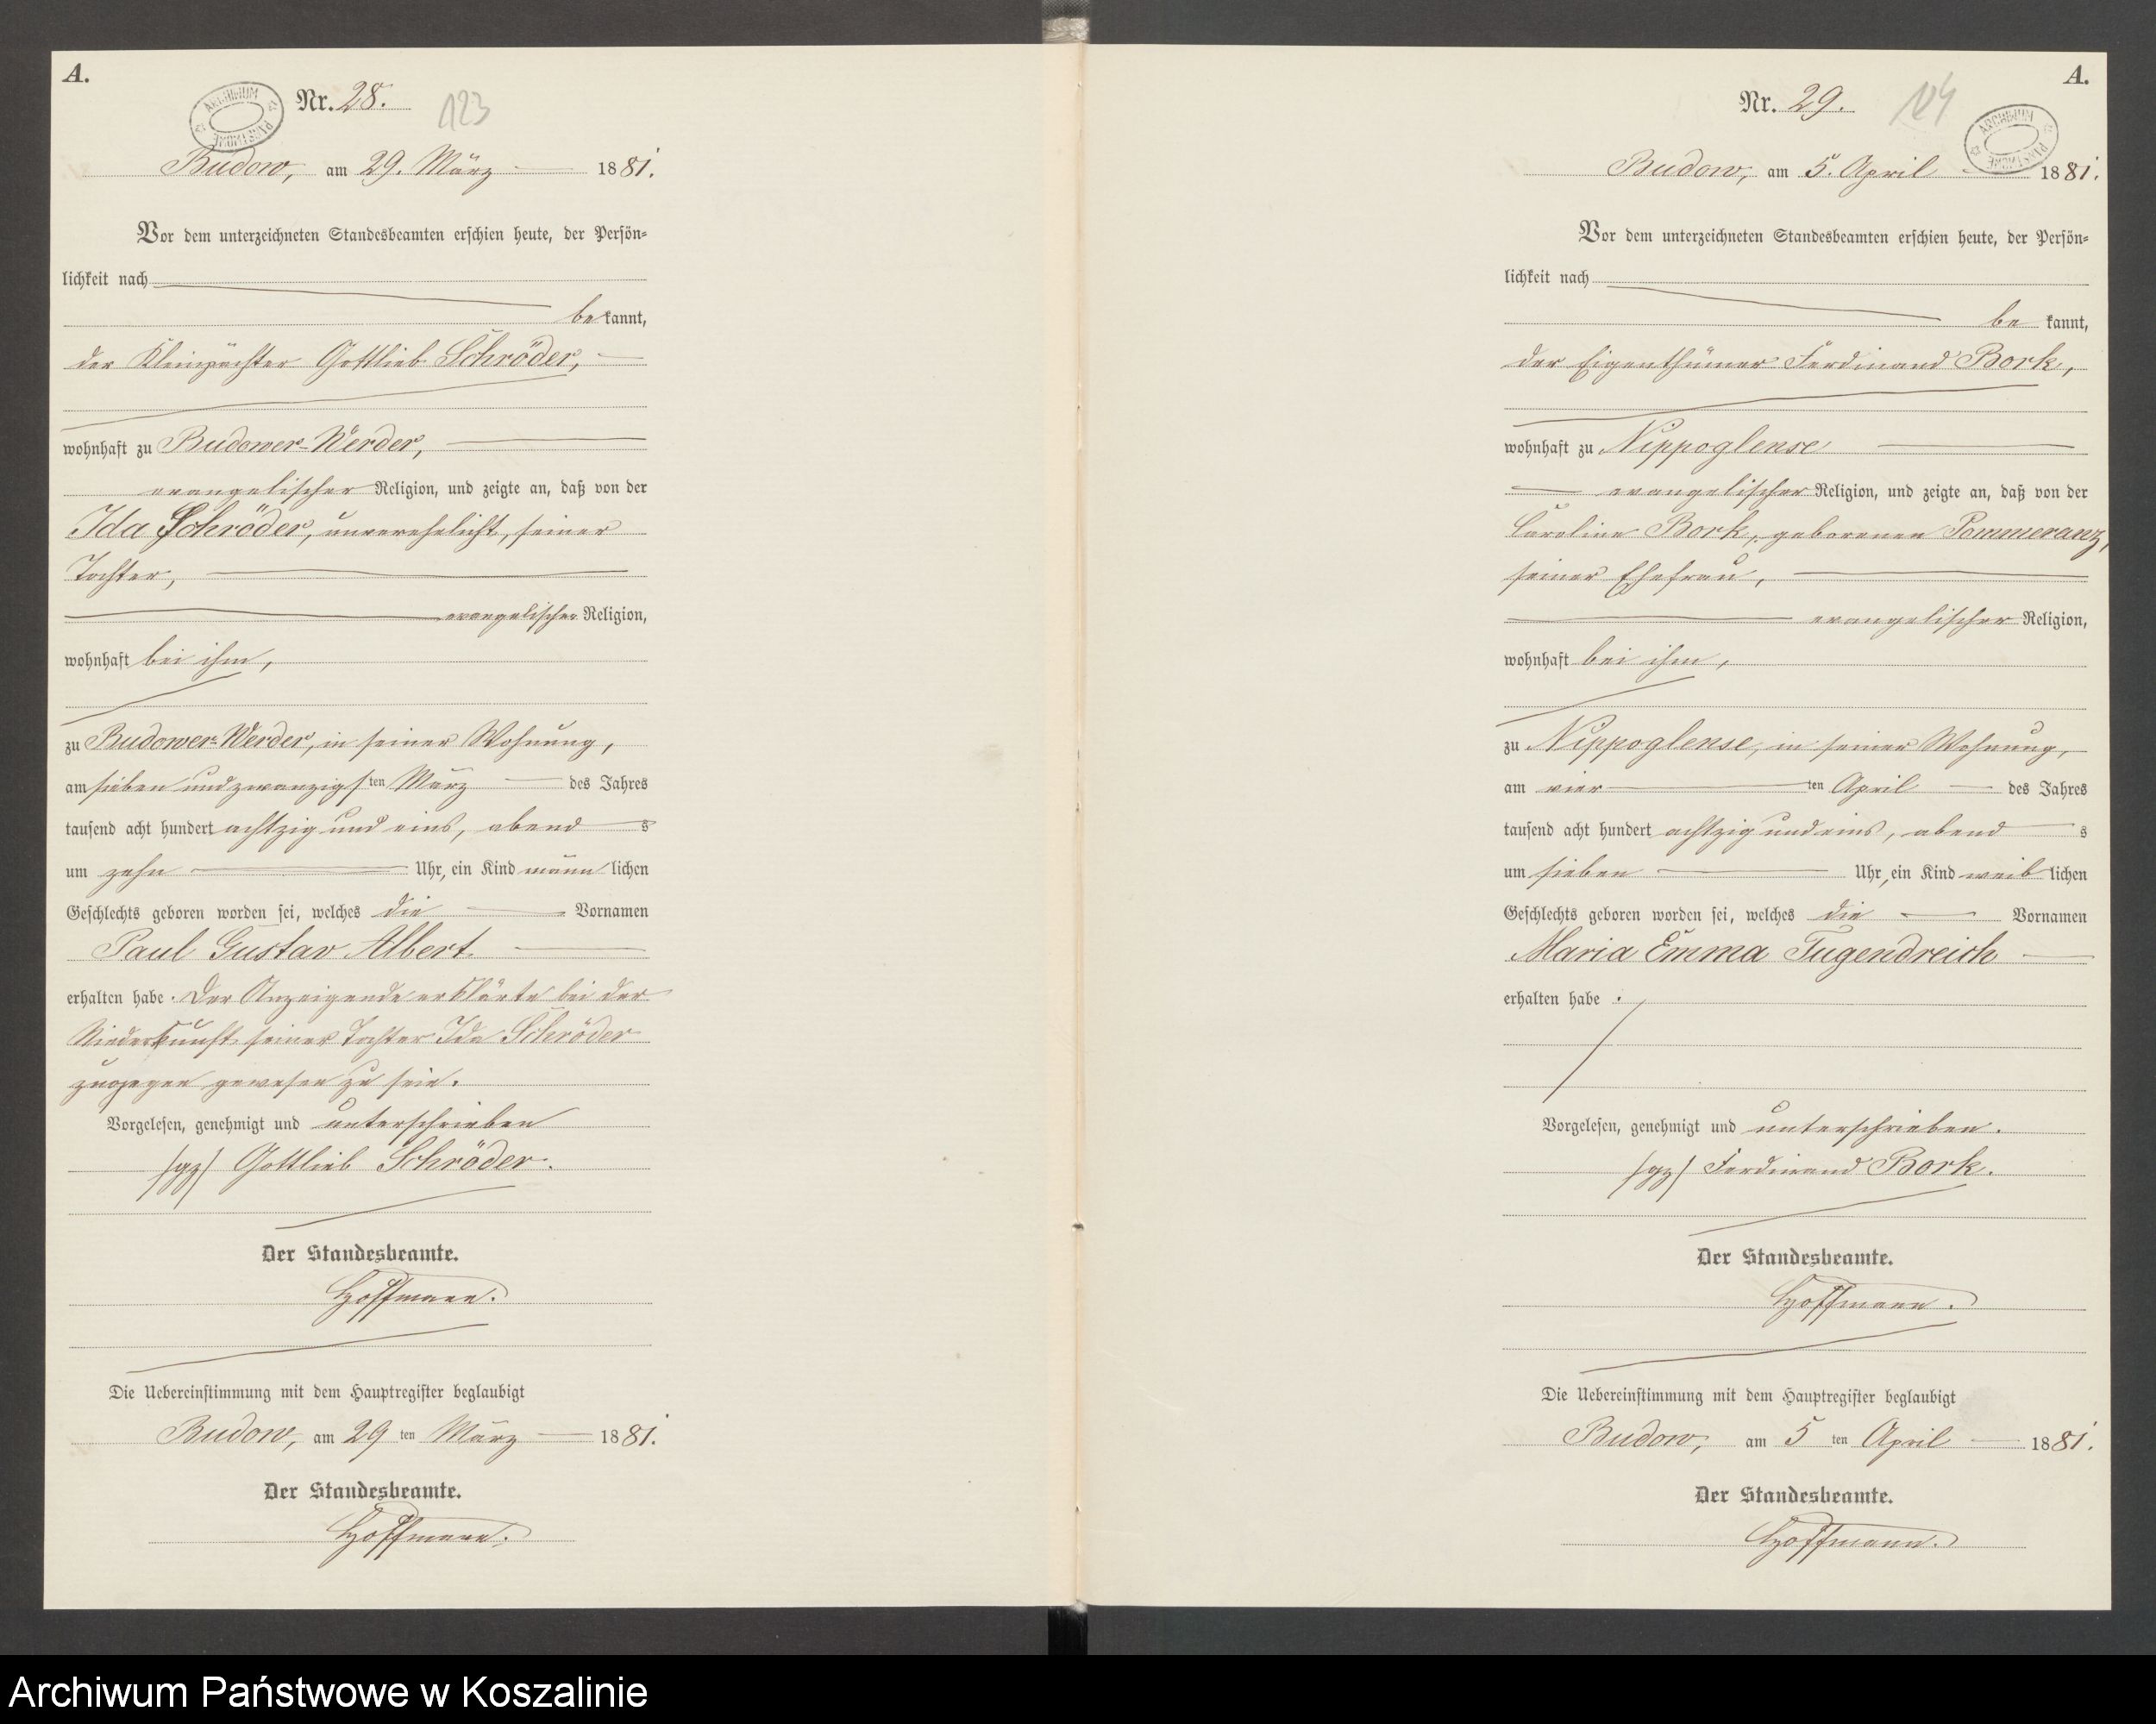 A.
Nr. 28.
123
ARCHIWUM PAŃSTWOWE
Budow, am 29. März 1881.
Vor dem unterzeichneten Standesbeamten erschien heute, der Persön-
lichkeit nach
be kannt,
der Kleinpächter Gottlieb Schröder,
wohnhaft zu Budower-Werder,
evangelischer Religion, und zeigte an, daß von der
Ida Schröder, unverehelicht, seiner
Tochter,
evangelischer Religion,
wohnhaft bei ihm,
zu Budower-Werder, in seiner Wohnung,
am sieben und zwanzigsten März des Jahres
tausend acht hundert achtzig und eins, abends
um zehn Uhr, ein Kind männlichen
Geschlechts geboren worden sei, welches die Vornamen
Paul Gustav Albert
erhalten habe. Der Anzeigende erklärte bei der
Niederkunft seiner Tochter Ida Schröder
zugegen gewesen zu sein.
Vorgelesen, genehmigt und unterschrieben
/gz/ Gottlieb Schröder.
Der Standesbeamte.
Hoffmann.
Die Uebereinstimmung mit dem Hauptregister beglaubigt
Budow, am 29 ten März 1881.
Der Standesbeamte.
Hoffmann.
A.
Nr. 29.
124
ARCHIWUM PAŃSTWOWE
Budow, am 5. April 1881.
Vor dem unterzeichneten Standesbeamten erschien heute, der Persön-
lichkeit nach
be kannt,
der Eigenthümer Ferdinand Bork,
wohnhaft zu Nippoglense
evangelischer Religion, und zeigte an, daß von der
Caroline Bork, geborenen Pommeranz,
seiner Ehefrau,
evangelischer Religion,
wohnhaft bei ihm,
zu Nippoglense, in seiner Wohnung,
am vier ten April des Jahres
tausend acht hundert achtzig und eins, abends
um sieben Uhr, ein Kind weiblichen
Geschlechts geboren worden sei, welches die Vornamen
Maria Emma Tugendreich
erhalten habe.
Vorgelesen, genehmigt und unterschrieben.
/gz/ Ferdinand Bork.
Der Standesbeamte.
Hoffmann.
Die Uebereinstimmung mit dem Hauptregister beglaubigt
Budow, am 5 ten April 1881.
Der Standesbeamte.
Hoffmann.
Archiwum Państwowe w Koszalinie